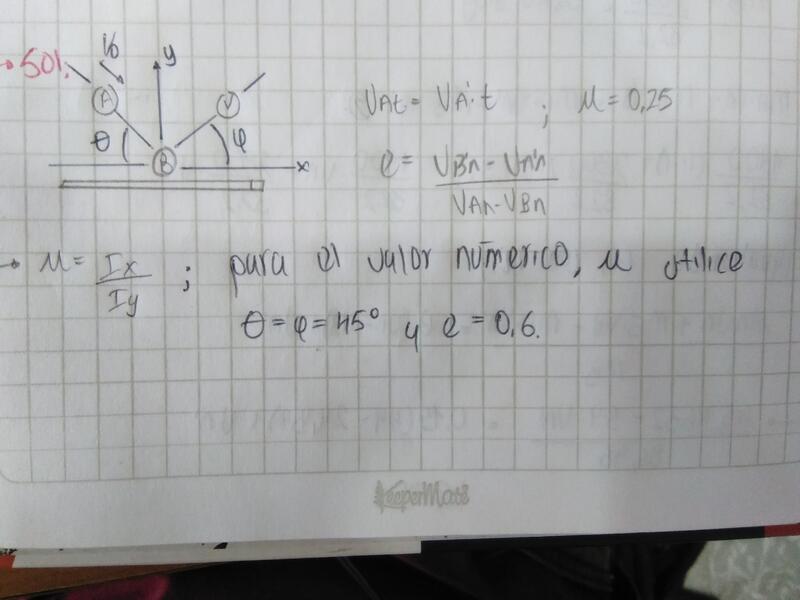 → 50%.
V0
y
A
V
θ
φ
B
x
VAt = VA't ; μ = 0,25
e = VB'n - VA'n / VAn - VBn
→ μ = Ix / Iy ; para el valor númerico, μ utilice
θ = φ = 45° y e = 0,6.
KeeperMate